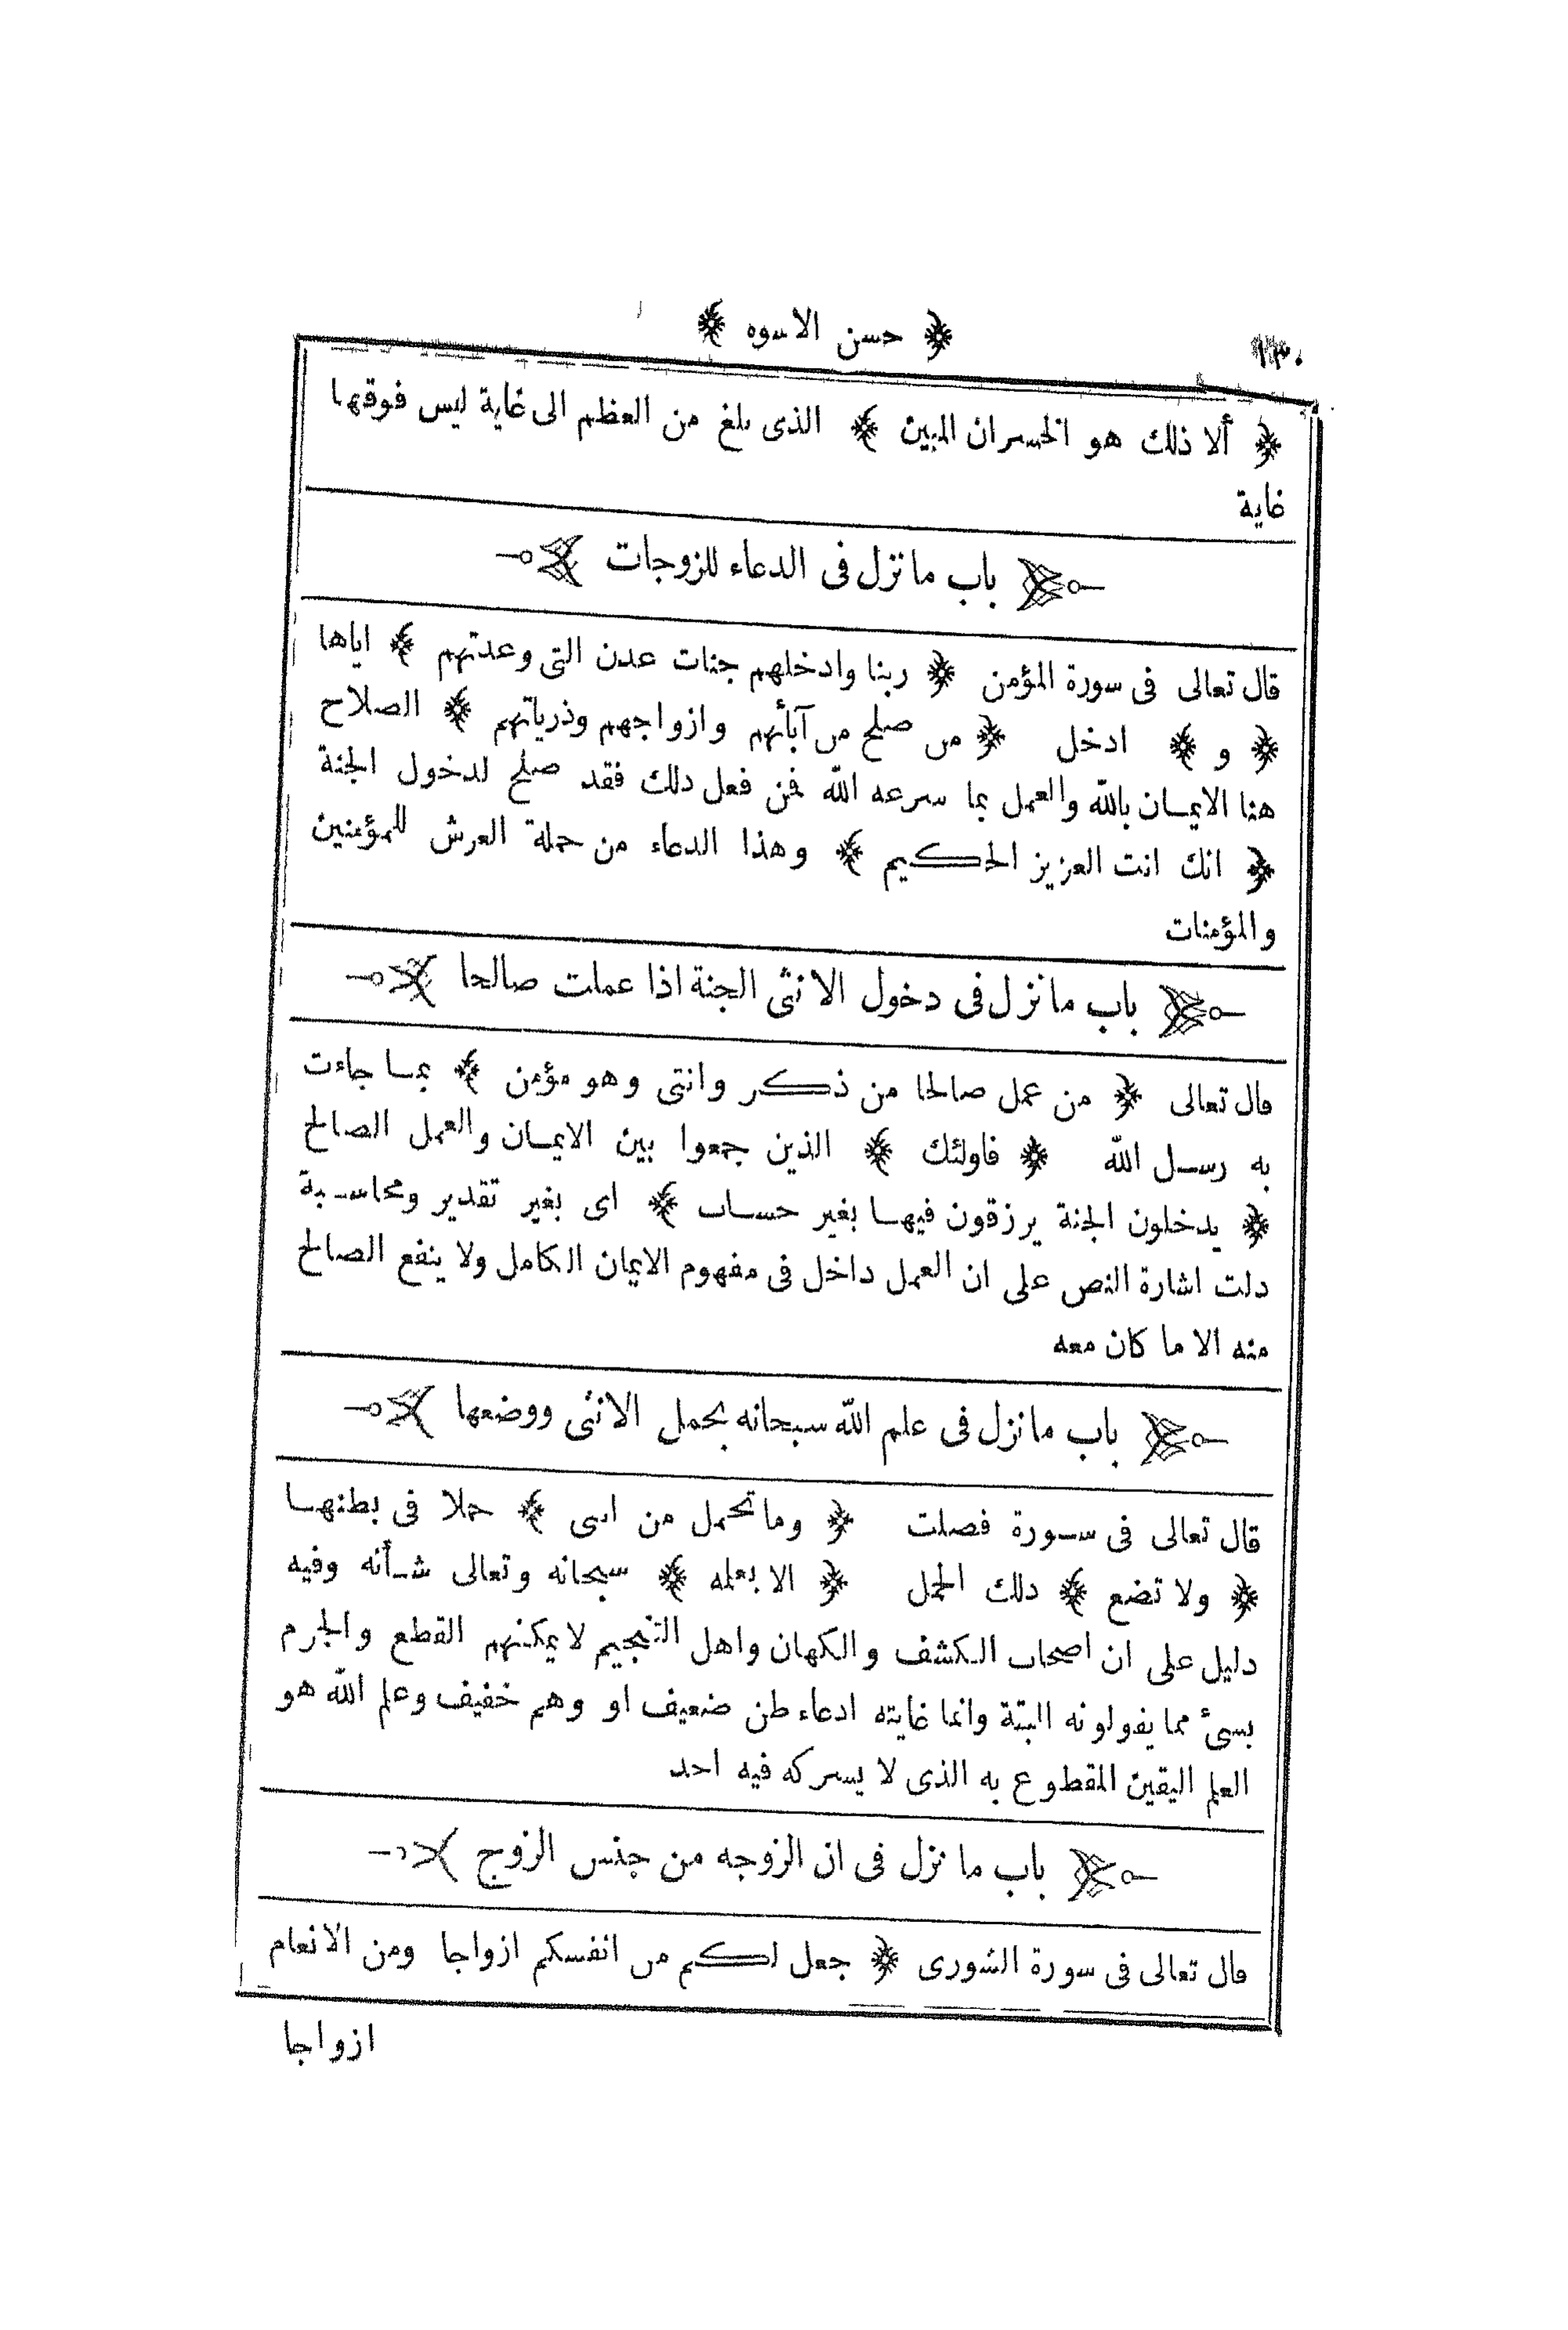 ١٣٠
﴿ حسن الاسوه ﴾
﴿ ألا ذلك هو الخسران المبين ﴾ الذى بلغ من العظم الى غاية ليس فوقها
غاية
باب ما نزل فى الدعاء للزوجات
قال تعالى فى سورة المؤمن ﴿ ربنا وادخلهم جنات عدن التى وعدتهم ﴾ اياها
﴿ و ﴾ ادخل ﴿ من صلح من آبائهم وازواجهم وذرياتهم ﴾ الصلاح
هنا الايمان بالله والعمل بما شرعه الله فمن فعل ذلك فقد صلح لدخول الجنة
﴿ انك انت العزيز الحكيم ﴾ وهذا الدعاء من حملة العرش للمؤمنين
والمؤمنات
باب ما نزل فى دخول الانثى الجنة اذا عملت صالحا
قال تعالى ﴿ من عمل صالحا من ذكر وانثى وهو مؤمن ﴾ بما جاءت
به رسل الله ﴿ فاولئك ﴾ الذين جمعوا بين الايمان والعمل الصالح
﴿ يدخلون الجنة يرزقون فيها بغير حساب ﴾ اى بغير تقدير ومحاسبة
دلت اشارة النص على ان العمل داخل فى مفهوم الايمان الكامل ولا ينفع الصالح
منه الا ما كان معه
باب ما نزل فى علم الله سبحانه بحمل الانثى ووضعها
قال تعالى فى سورة فصلت ﴿ وما تحمل من انثى ﴾ حملا فى بطنها
﴿ ولا تضع ﴾ ذلك الحمل ﴿ الا بعلمه ﴾ سبحانه وتعالى شأنه وفيه
دليل على ان اصحاب الكشف والكهان واهل التنجيم لا يمكنهم القطع والجزم
بشئ مما يقولونه البتة وانما غايته ادعاء ظن ضعيف او وهم خفيف وعلم الله هو
العلم اليقين المقطوع به الذى لا يشركه فيه احد
باب ما نزل فى ان الزوجه من جنس الزوج
قال تعالى فى سورة الشورى ﴿ جعل لكم من انفسكم ازواجا ومن الانعام
ازواجا